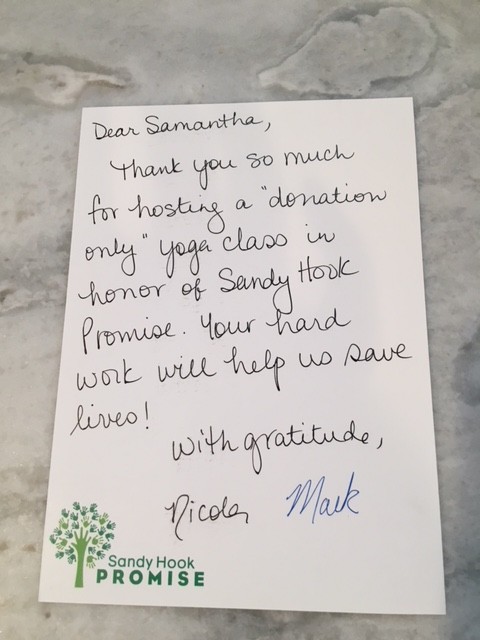 Dear Samantha,
Thank you so much
for hosting a "donation
only" yoga class in
honor of Sandy Hook
Promise. Your hard
work will help us save
lives!
with gratitude,
Nicole Mark
Sandy Hook
PROMISE